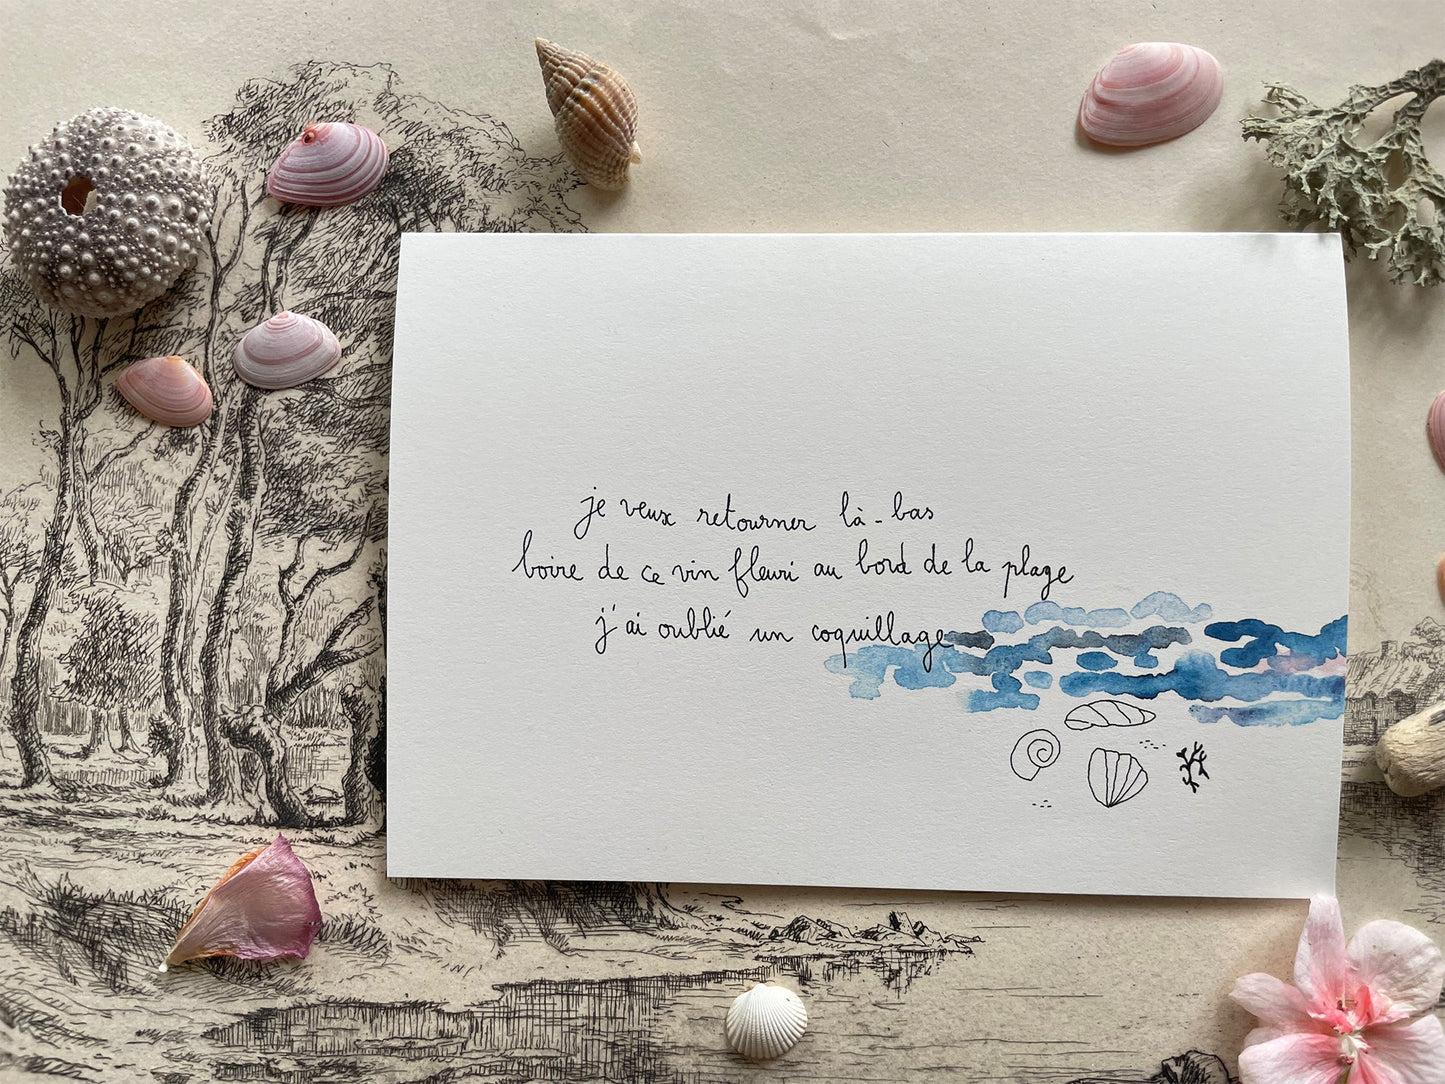 je veux retourner là-bas
boire de ce vin fleuri au bord de la plage
j'ai oublié un coquillage